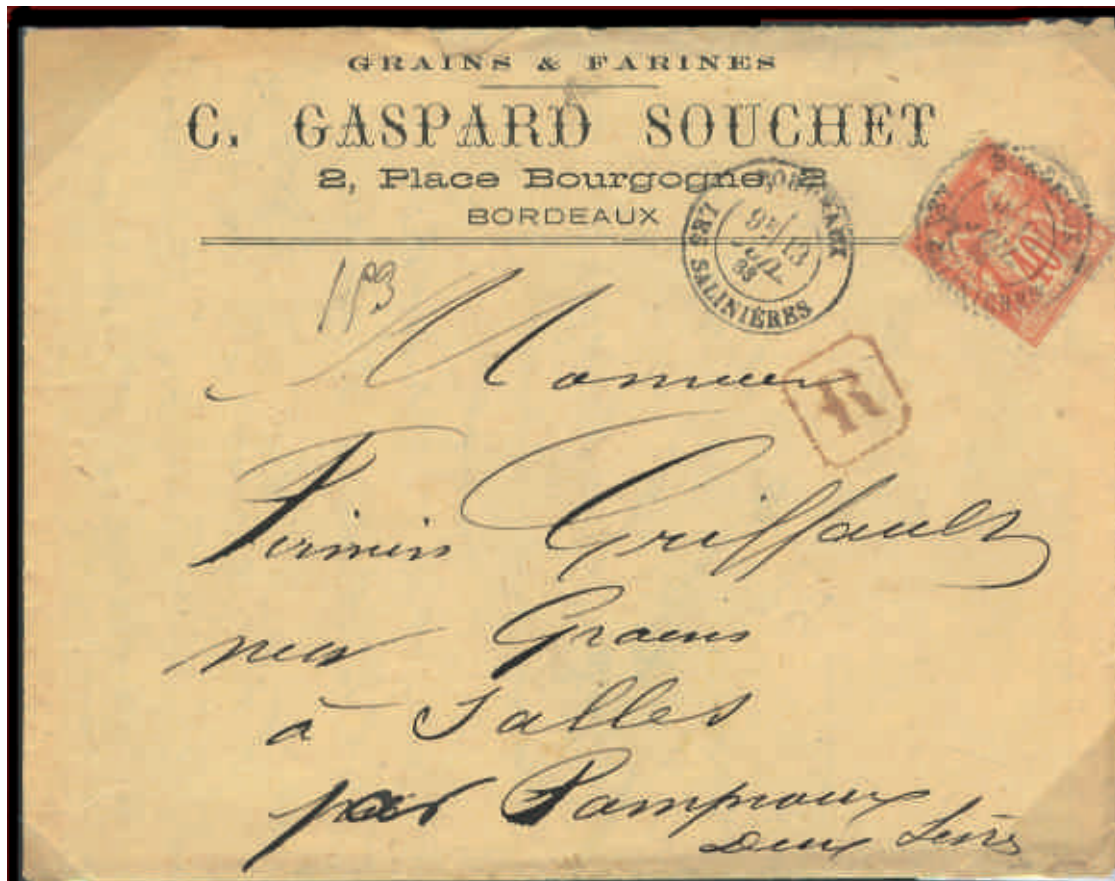 GRAINS & FARINES
C. GASPARD SOUCHET
2, Place Bourgogne, 2
BORDEAUX
BORDEAUX
LES SALINIÈRES
13
40
R
Monsieur
Firmin Griffault
Grains
à Salles
par Pamproux
Deux Sèvres